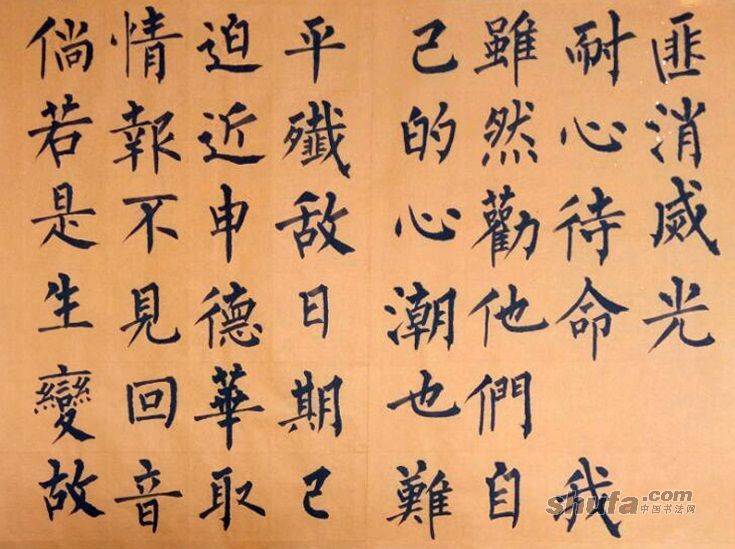 匪消烕光
耐心待命 我
雖然勸他們自
己的心潮也難
平殲敵日期已
迫近申德華取
情報不見回音
倘若是生變故
shufa.com
中国书法网